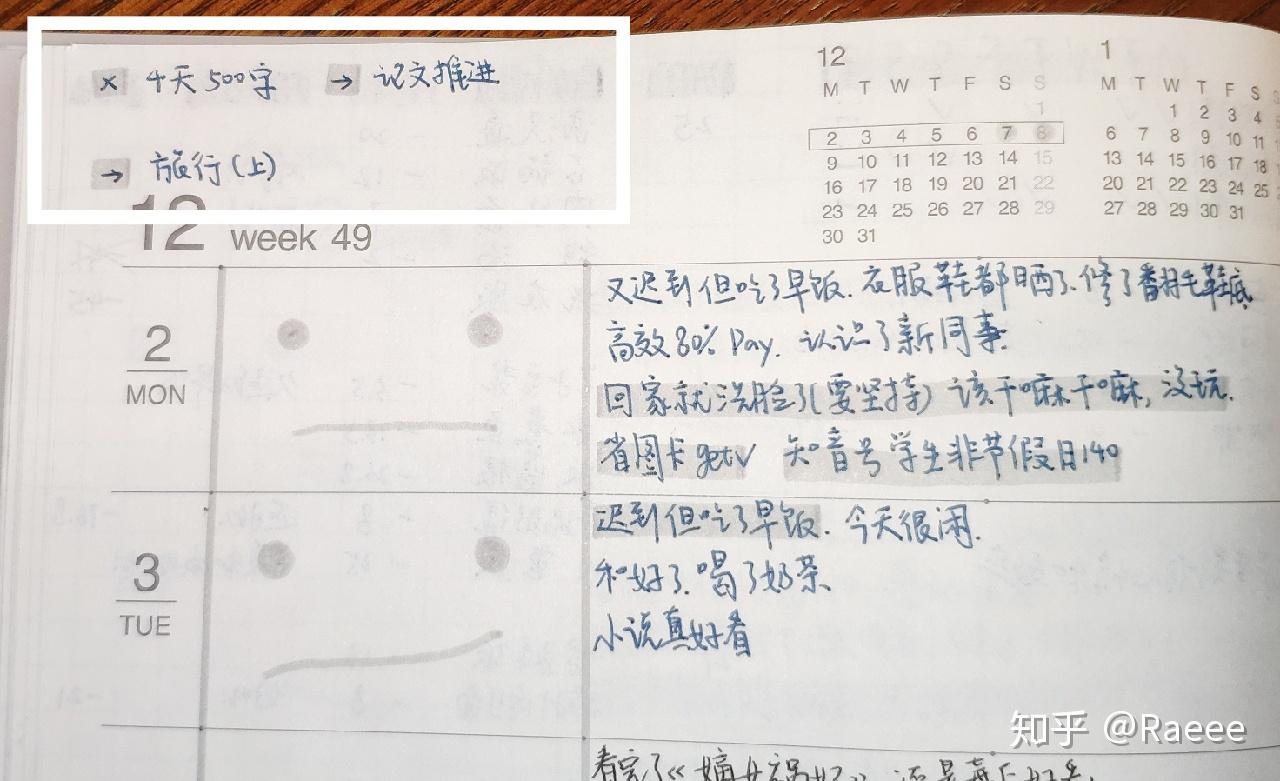 × 4天500字 → 论文推进
→ 旅行(上)
12 week 49
12
M T W T F S S
1
2 3 4 5 6 7 8
9 10 11 12 13 14 15
16 17 18 19 20 21 22
23 24 25 26 27 28 29
30 31
1
M T W T F S S
1 2 3 4
6 7 8 9 10 11
13 14 15 16 17 18
20 21 22 23 24 25
27 28 29 30 31
2
MON
又迟到但吃了早饭. 衣服鞋都晒了. 修了翻毛鞋底
高效80% Day. 认识了新同事.
回家就洗脸了(要坚持) 该干嘛干嘛, 没玩.
省图卡get√ 知音号学生非节假日140
3
TUE
迟到但吃了早饭. 今天很闲.
和好了. 喝了奶茶.
小说真好看
看完了《嫡女
知乎 @Raeee